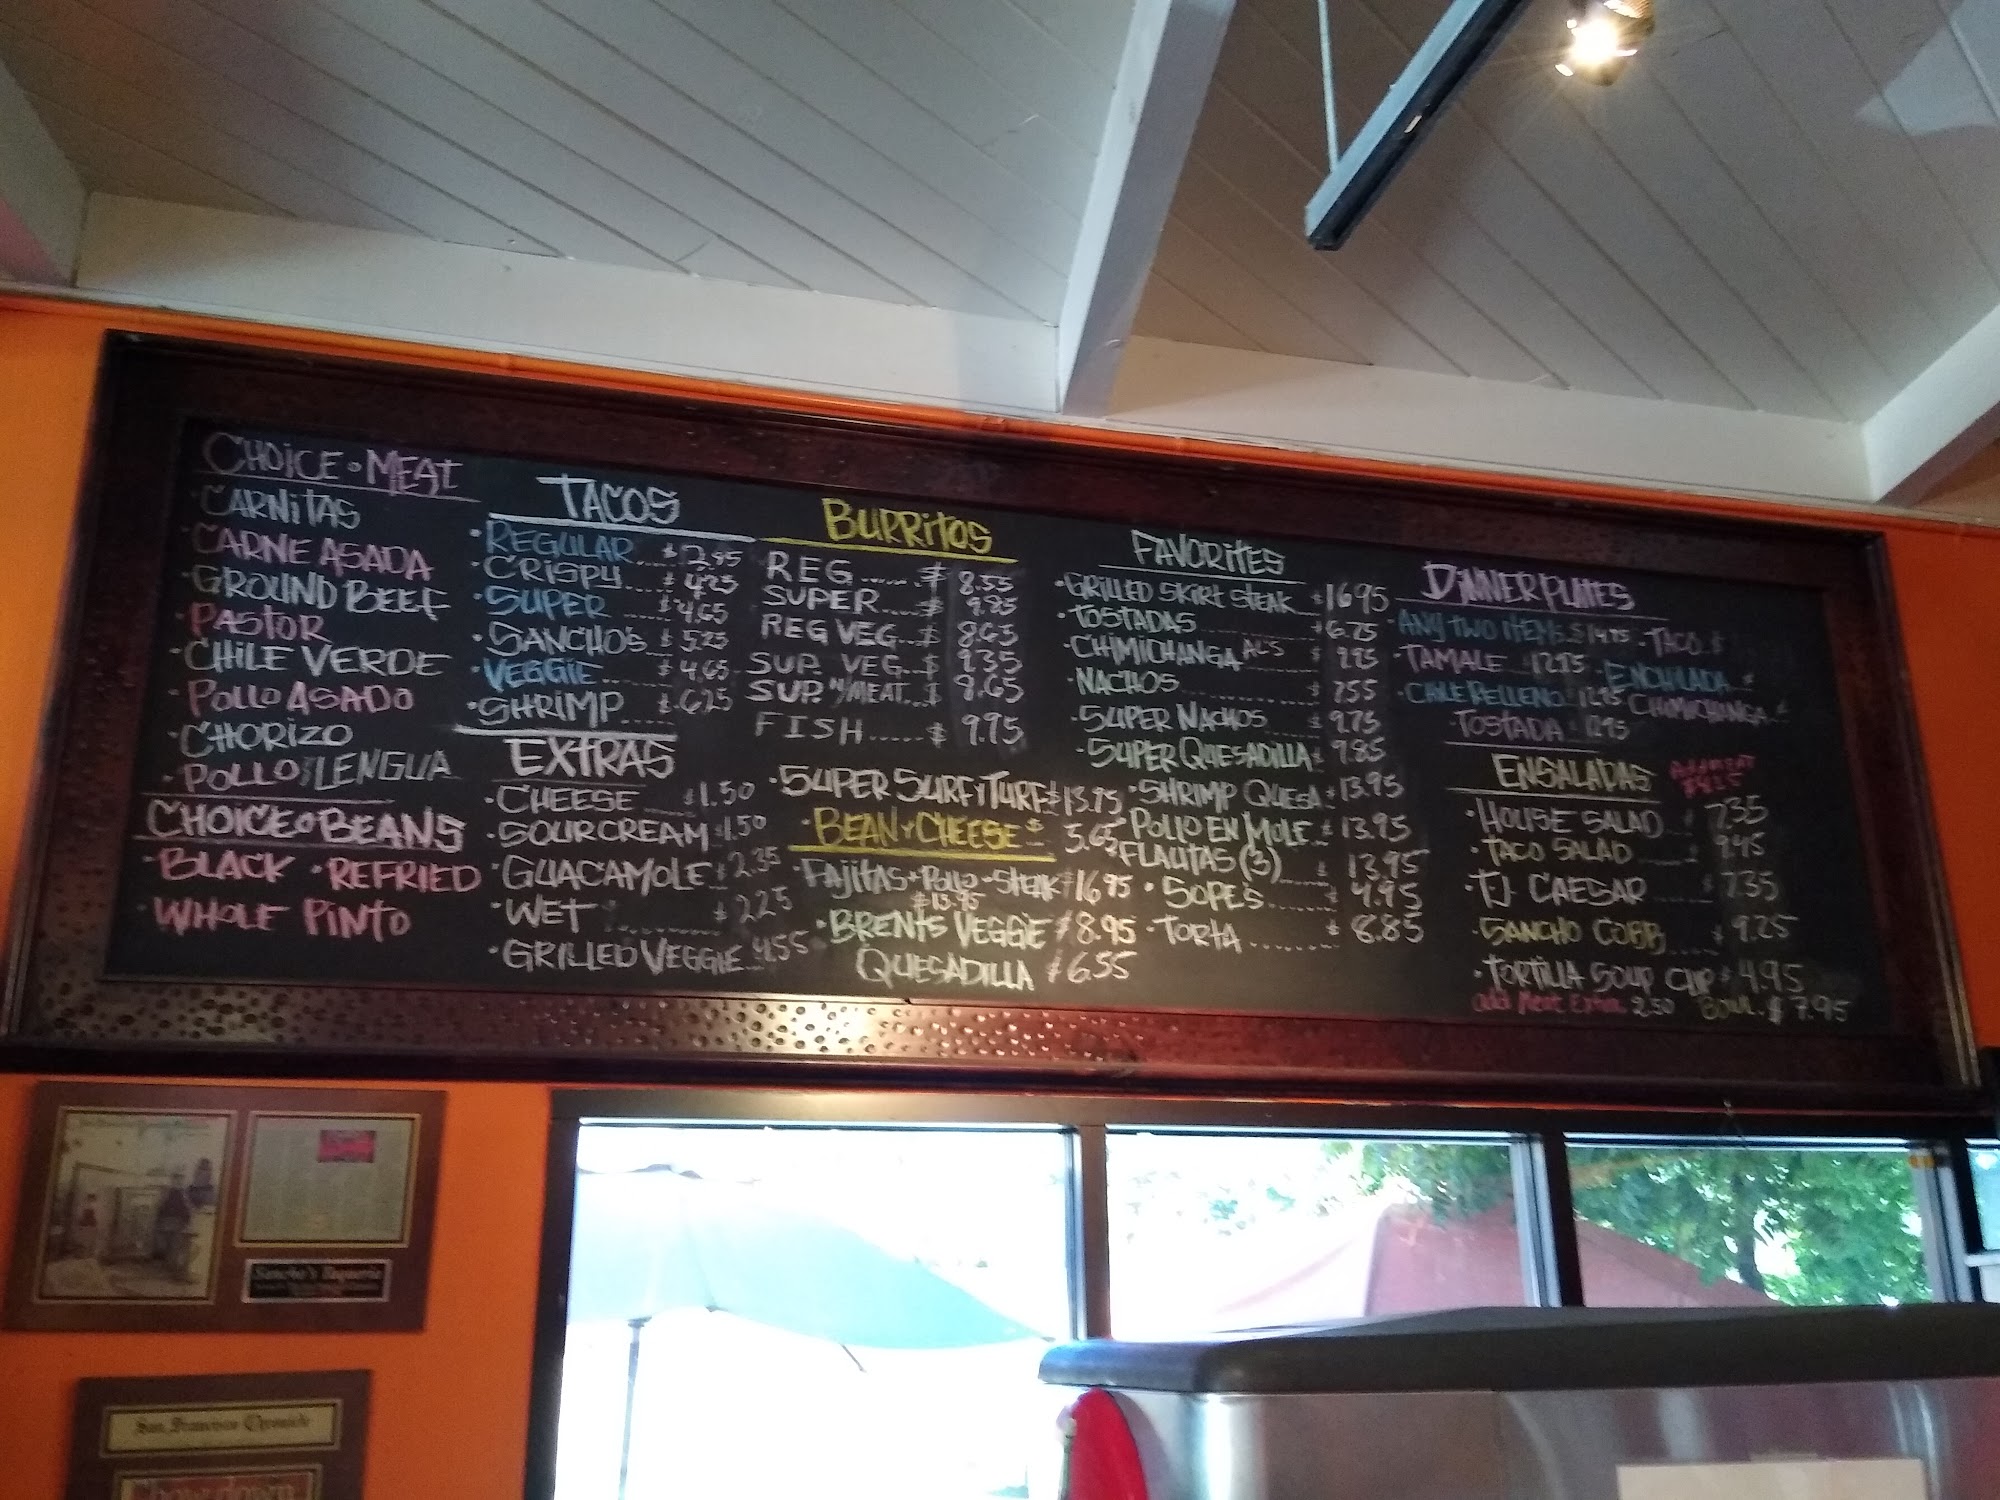 CHOICE o MEAT
CARNITAS
CARNE ASADA
GROUND BEEF
PASTOR
CHILE VERDE
POLLO ASADO
CHORIZO
POLLO LENGUA
CHOICE o BEANS
BLACK · REFRIED
WHOLE PINTO
TACOS
REGULAR $2.95
CRISPY $4.25
SUPER $4.65
SANCHO'S $5.25
VEGGIE $4.65
SHRIMP $6.25
EXTRAS
CHEESE $1.50
SOUR CREAM $1.50
GUACAMOLE $2.35
WET $2.25
GRILLED VEGGIE 4.55
BURRITOS
REG $8.55
SUPER $9.85
REG VEG $8.65
SUP. VEG $9.35
SUP. W/MEAT $8.65
FISH $9.95
SUPER SURF Y TURF $13.95
BEAN Y CHEESE $5.65
FAJITAS · POLLO · STEAK $16.95
$13.95
BRENTS VEGGIE $8.95
QUESADILLA $6.55
FAVORITES
GRILLED SKIRT STEAK $16.95
TOSTADAS $6.75
CHIMICHANGA AL'S $9.95
NACHOS $7.55
SUPER NACHOS $9.75
SUPER QUESADILLA $9.85
SHRIMP QUESA $13.95
POLLO EN MOLE $13.95
FLAUTAS (3) $13.95
SOPE'S $4.95
TORTA $8.85
DINNER PLATES
ANY TWO ITEMS $14.95 · TACO $
TAMALE 12.95 · ENCHILADA $
CHILE RELLENO $12.95 CHIMICHANGA $
TOSTADA $12.95
ENSALADAS ADD MEAT
HOUSE SALAD $7.35
TACO SALAD $9.45
TJ CAESAR $7.35
SANCHO COBB $9.25
TORTILLA SOUP CUP $4.95
add Meat Extra 2.50 BOWL $7.95
Sancho's Taqueria
San Francisco Chronicle
Chowdown